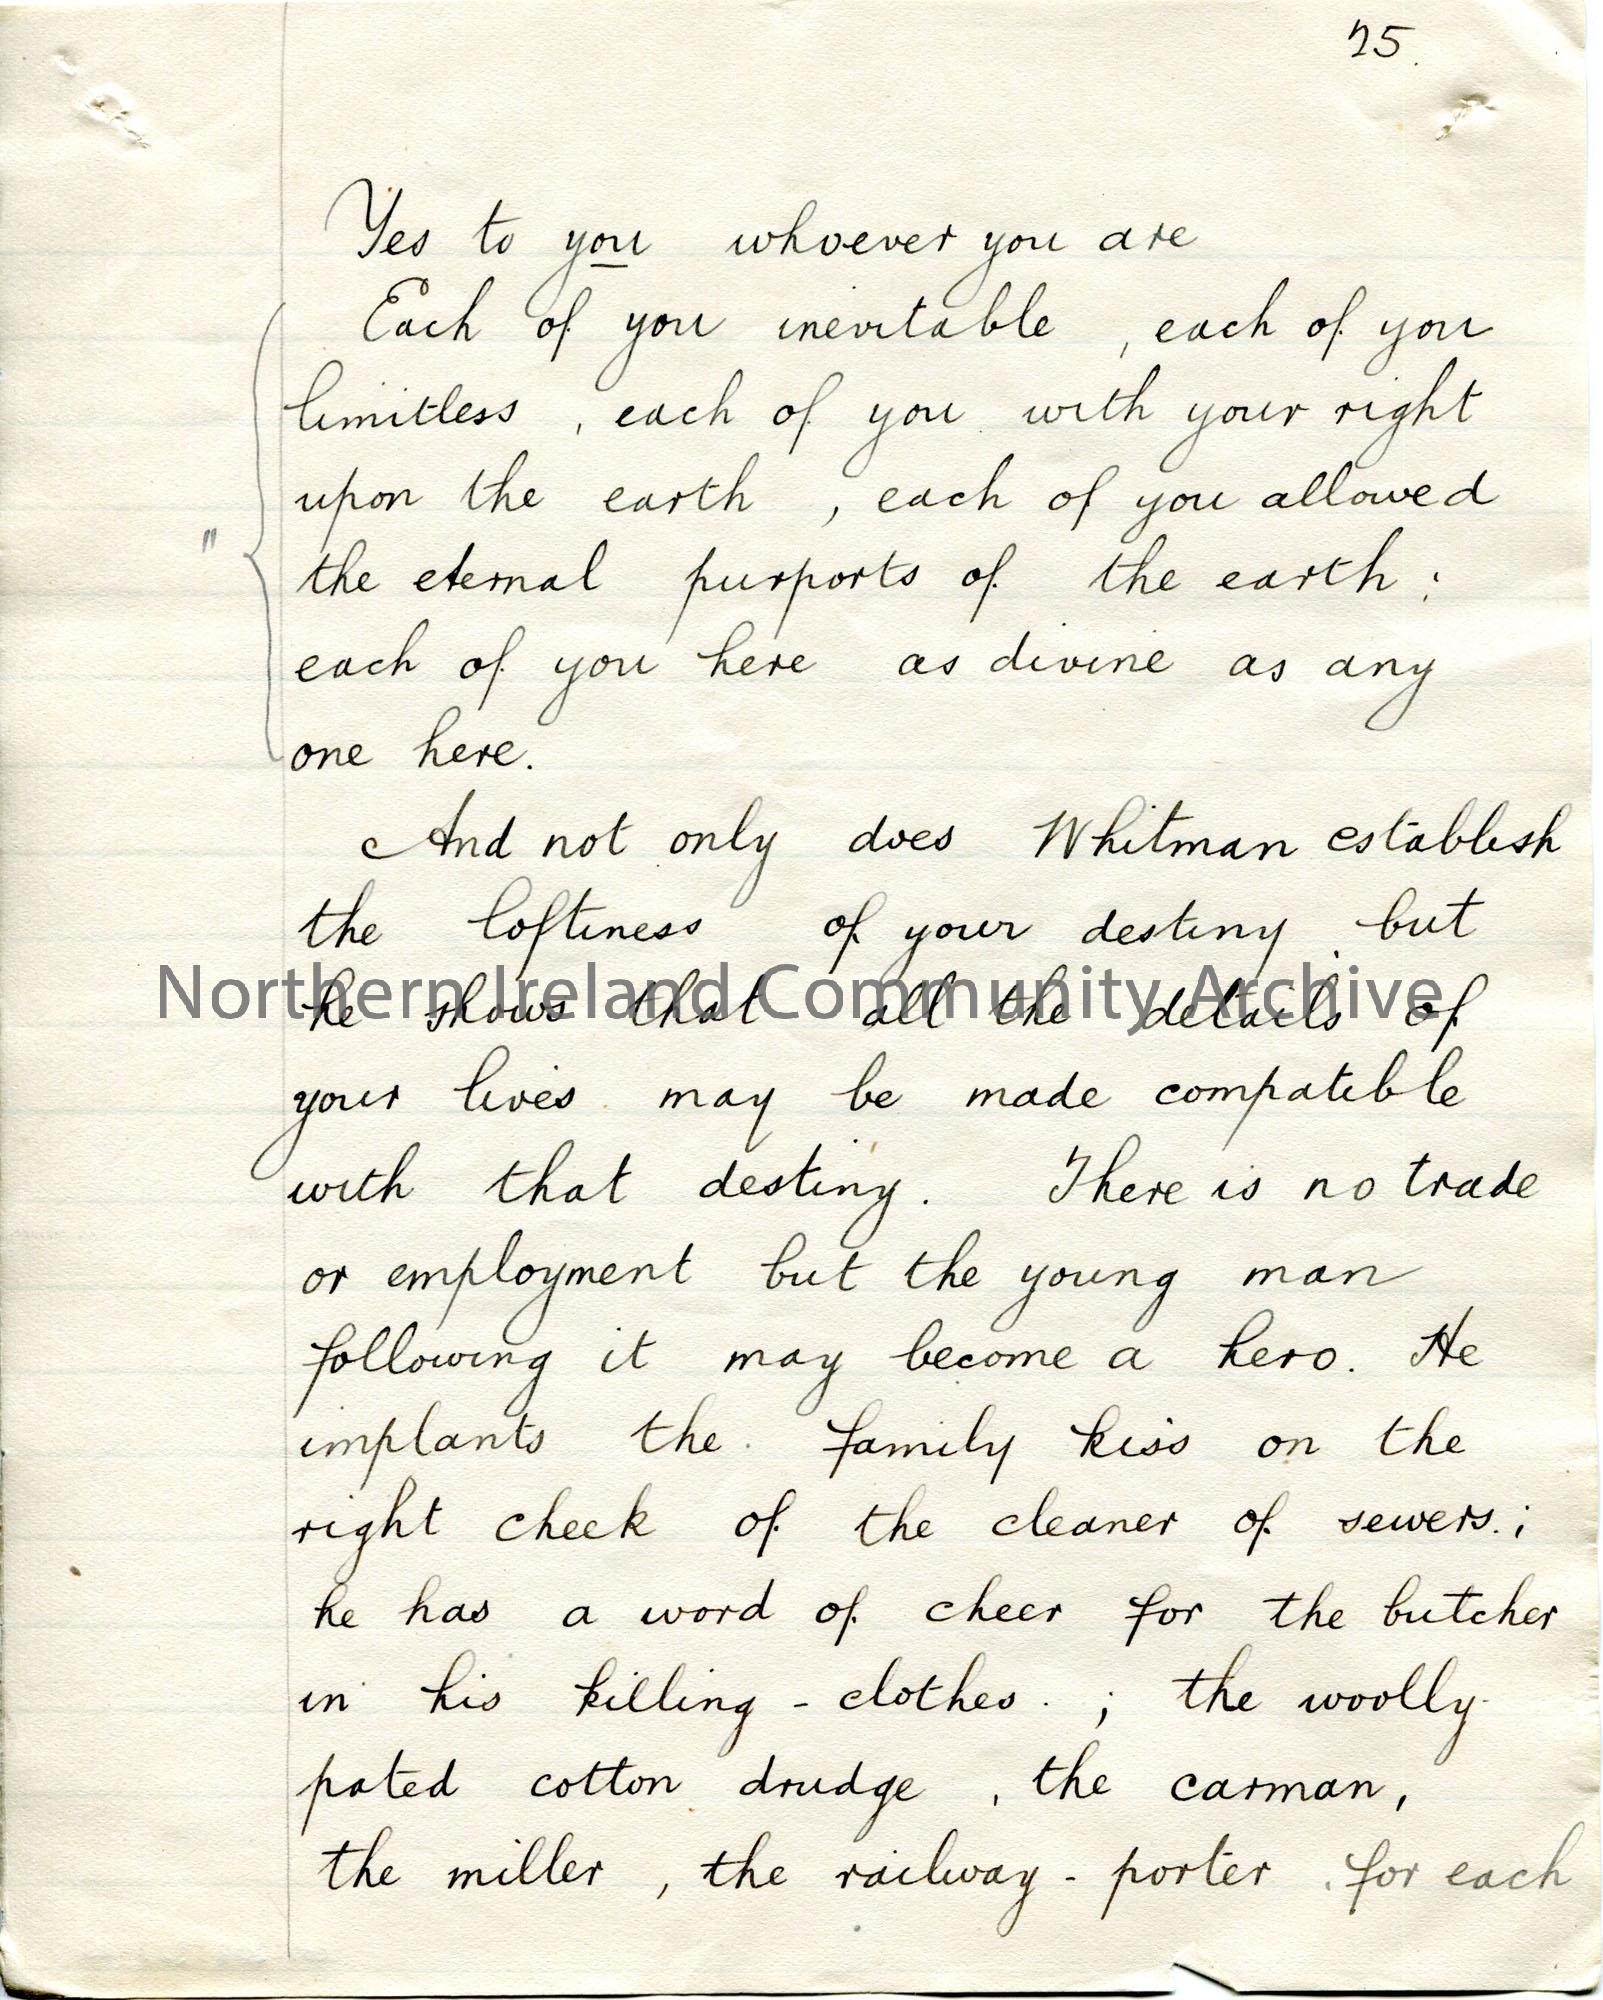 25.
Yes to you whoever you are
Each of you inevitable, each of you
limitless, each of you with your right
upon the earth, each of you allowed
the eternal purports of the earth;
"
each of you here as divine as any
one here.
And not only does Whitman establish
the loftiness of your destiny, but
he shows that all the details of
Northern Ireland Community Archive
your lives may be made compatible
with that destiny. There is no trade
or employment but the young man
following it may become a hero. He
implants the family kiss on the
right cheek of the cleaner of sewers.;
he has a word of cheer for the butcher
in his killing-clothes.; the woolly-
pated cotton drudge, the carman,
the miller, the railway-porter, for each